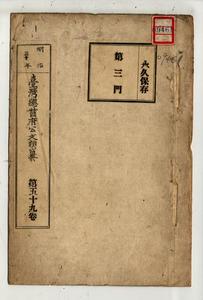 永久保存
第三門
明治
臺灣總督府公文類纂
第五十九卷